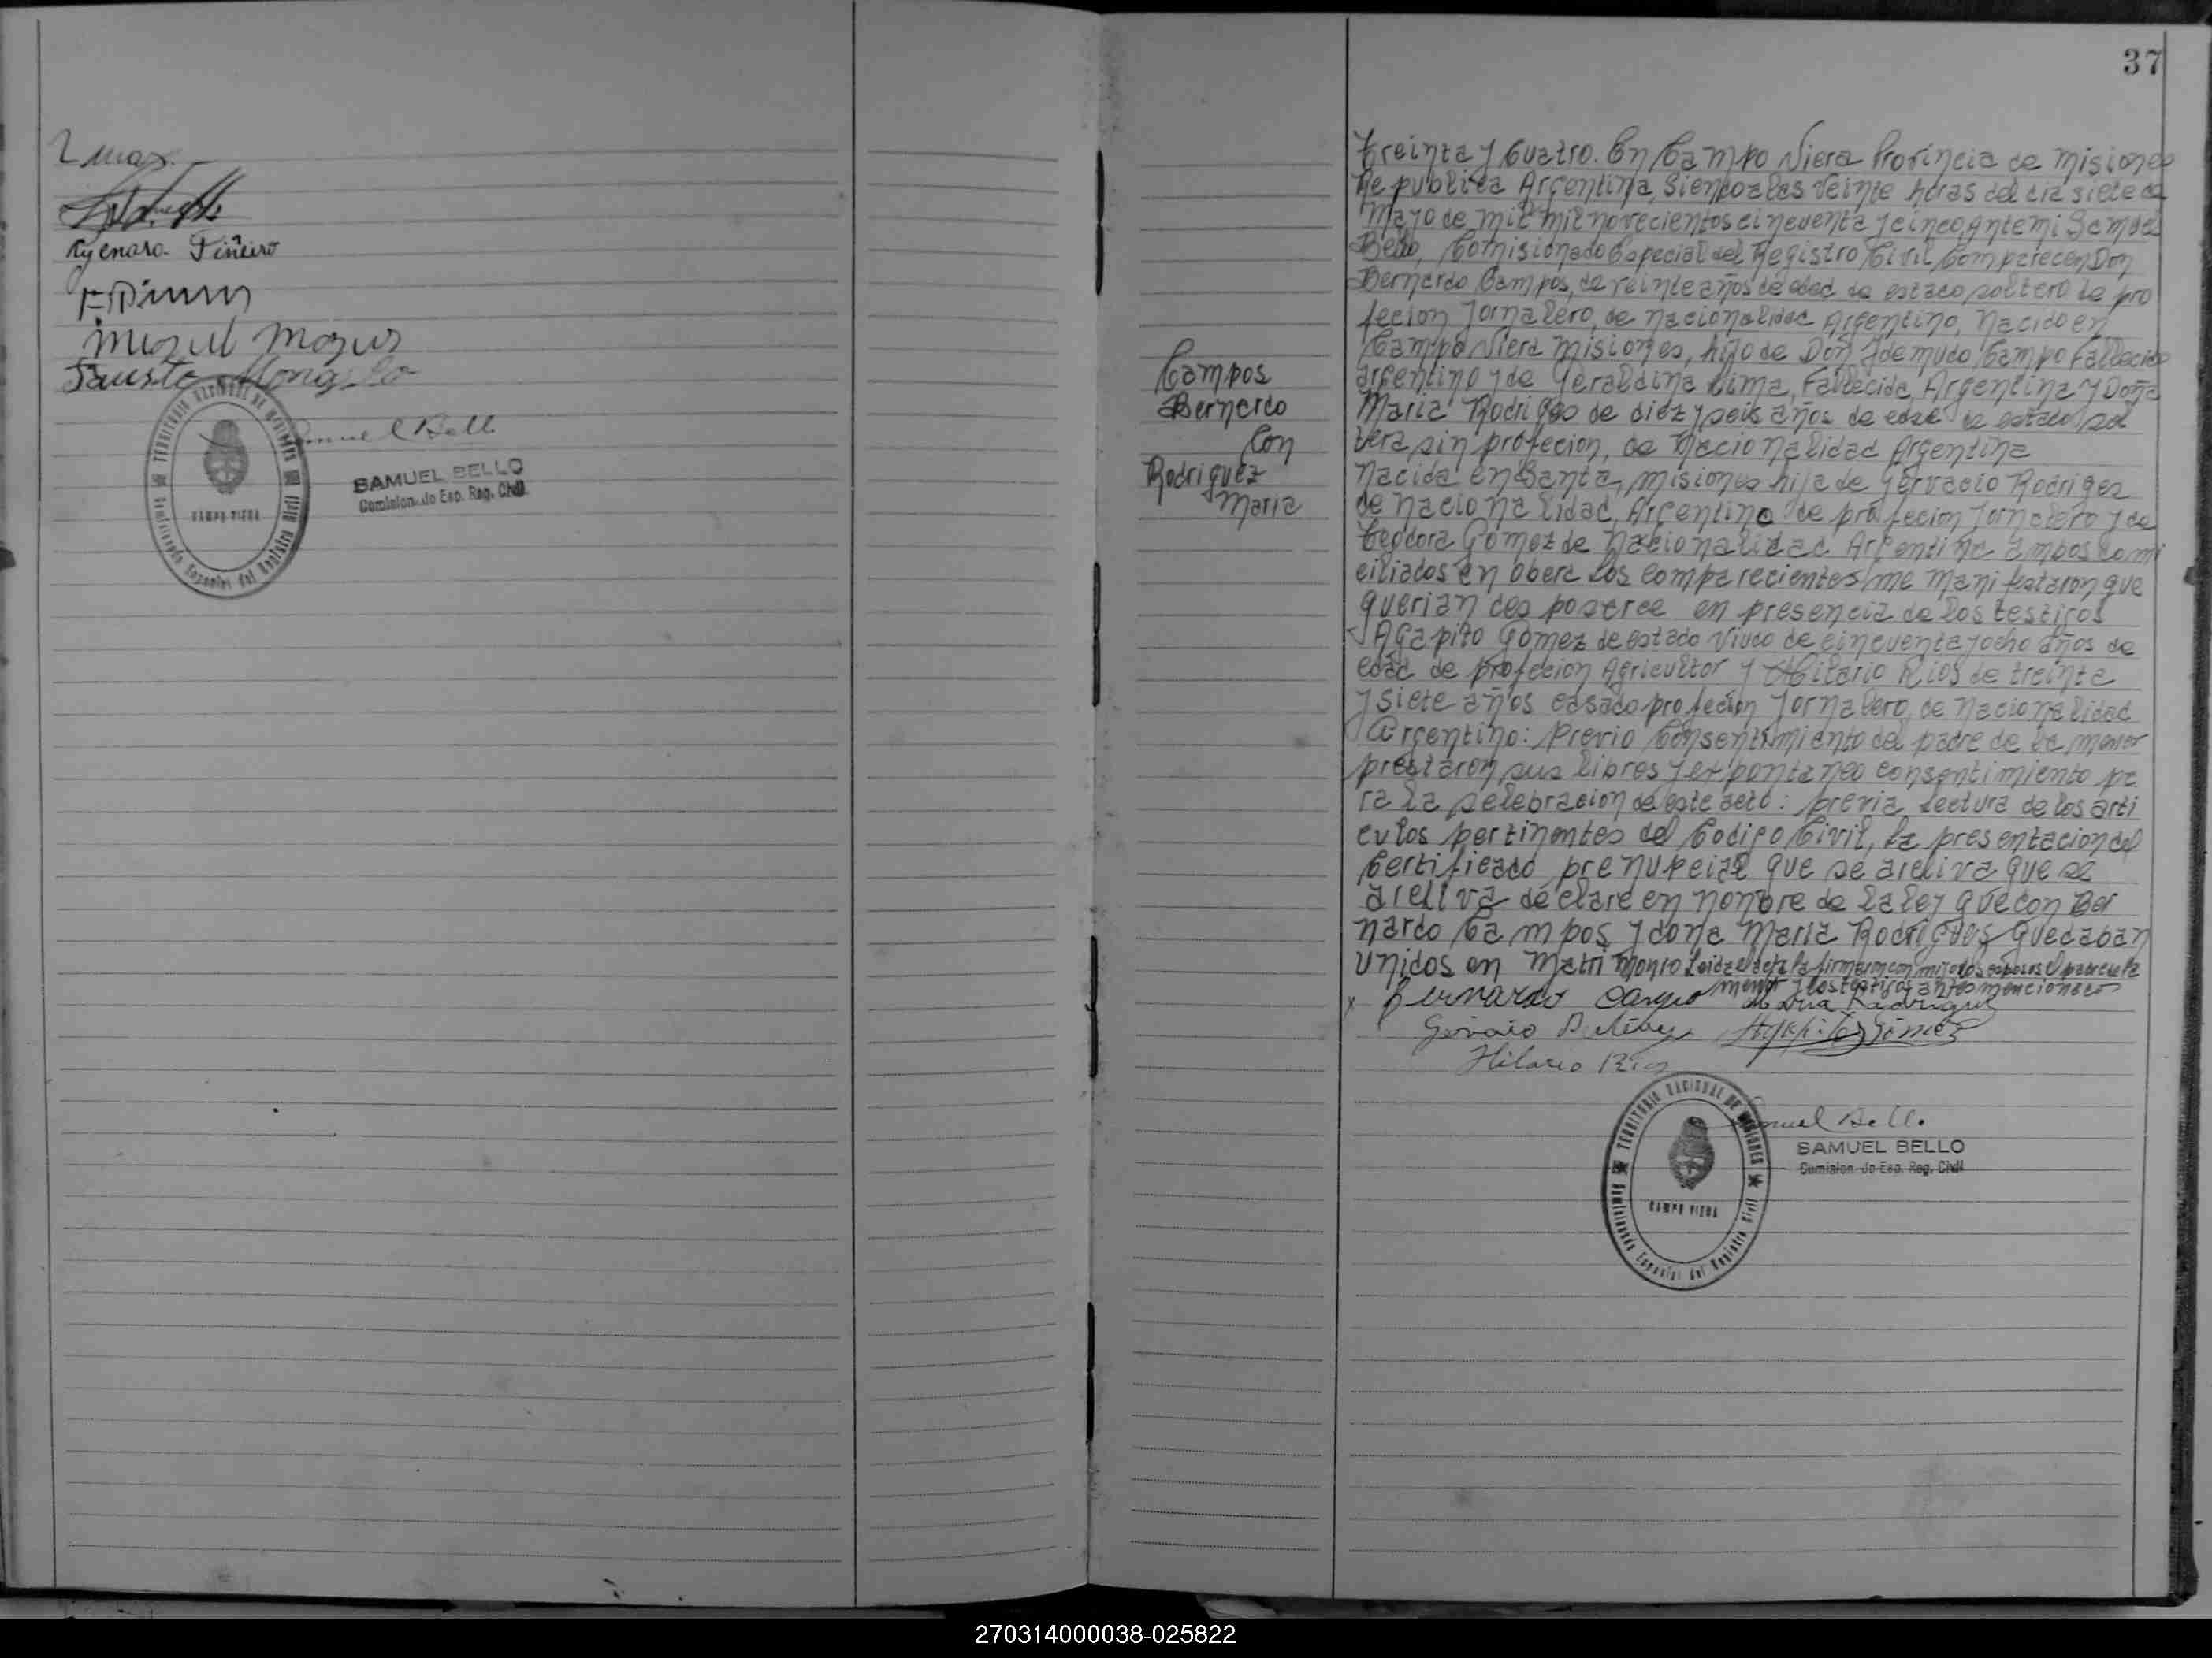 Genara Piñeiro
Miguel
Fausto
TERRITORIO NACIONAL DE MISIONES
Comisionado Especial del Registro Civil
CAMPO VIERA
Samuel Bello
SAMUEL BELLO
Comision do Esp. Reg. Civil
37
Campos
Bernardo
Con
Rodriguez
Maria
treinta y Cuatro. En Campo Viera Provincia de Misiones
Republica Argentina, Siendo a las Veinte horas del dia siete de
Mayo de mil mil novecientos cincuenta y cinco, Ante mi Samuel
Bello, Comisionado Especial del Registro Civil Comparecen Don
Bernardo Campos, de veinte años de edad de estado soltero de pro
fecion Jornalero, de nacionalidad Argentino, Nacido en
Campo Viera Misiones, hijo de Don Campo Fallecido
argentino y de Geraldina Lima, Fallecida, Argentina y Doña
Maria Rodriges de diez y seis años de edad de estado sol
tera sin profecion, de Nacionalidad Argentina
nacida en Santa, misiones hija de Gervacio Rodriges
de nacionalidad, Argentino de profecion Jornalero y de
teodora Gomez de nacionalidad Argentina ambos domi
ciliados en obera los comparecientes me manifestaron que
querian desposarce en presencia de los testigos
Agapito Gomez de estado Viudo de cincuenta y ocho años de
edad de profecion Agricultor y Hilario Rios de treinta
y siete años casado profecion Jornalero, de nacionalidad
Argentino: Previo Consentimiento del padre de la menor
prestaron sus libres y expontaneo consentimiento pa
ra la selebracion de este acto: previa lectura de los arti
culos pertinentes del Codigo Civil, la presentacion del
Certificado prenupcial que se archiva que se
archiva declare en nonbre de la ley que con Ber
nardo Campos y dona Maria Rodrigues quedaban
unidos en Matrimonio Leida el acta la firmaron con migo los esposos el padre de la
menor y los testigos antes mencionados
x Bernardo Campo Maria Rodriguez
Agapito Gómez
Hilario Rios
TERRITORIO NACIONAL DE MISIONES
Comisionado Especial del Registro Civil
CAMPO VIERA
Samuel Bello.
SAMUEL BELLO
Comision do Esp. Reg. Civil
270314000038-025822